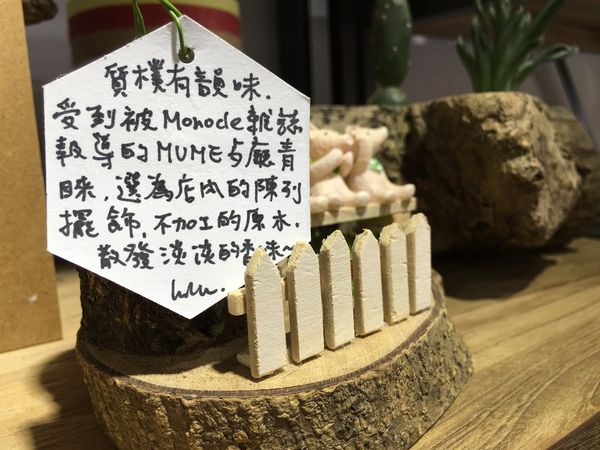 質樸有韻味.
受到被Monocle雜誌
報導的MUME与廳青
睞,選為店內的陳列
擺飾,不加工的原木,
散發淡淡的香味~
lulu.